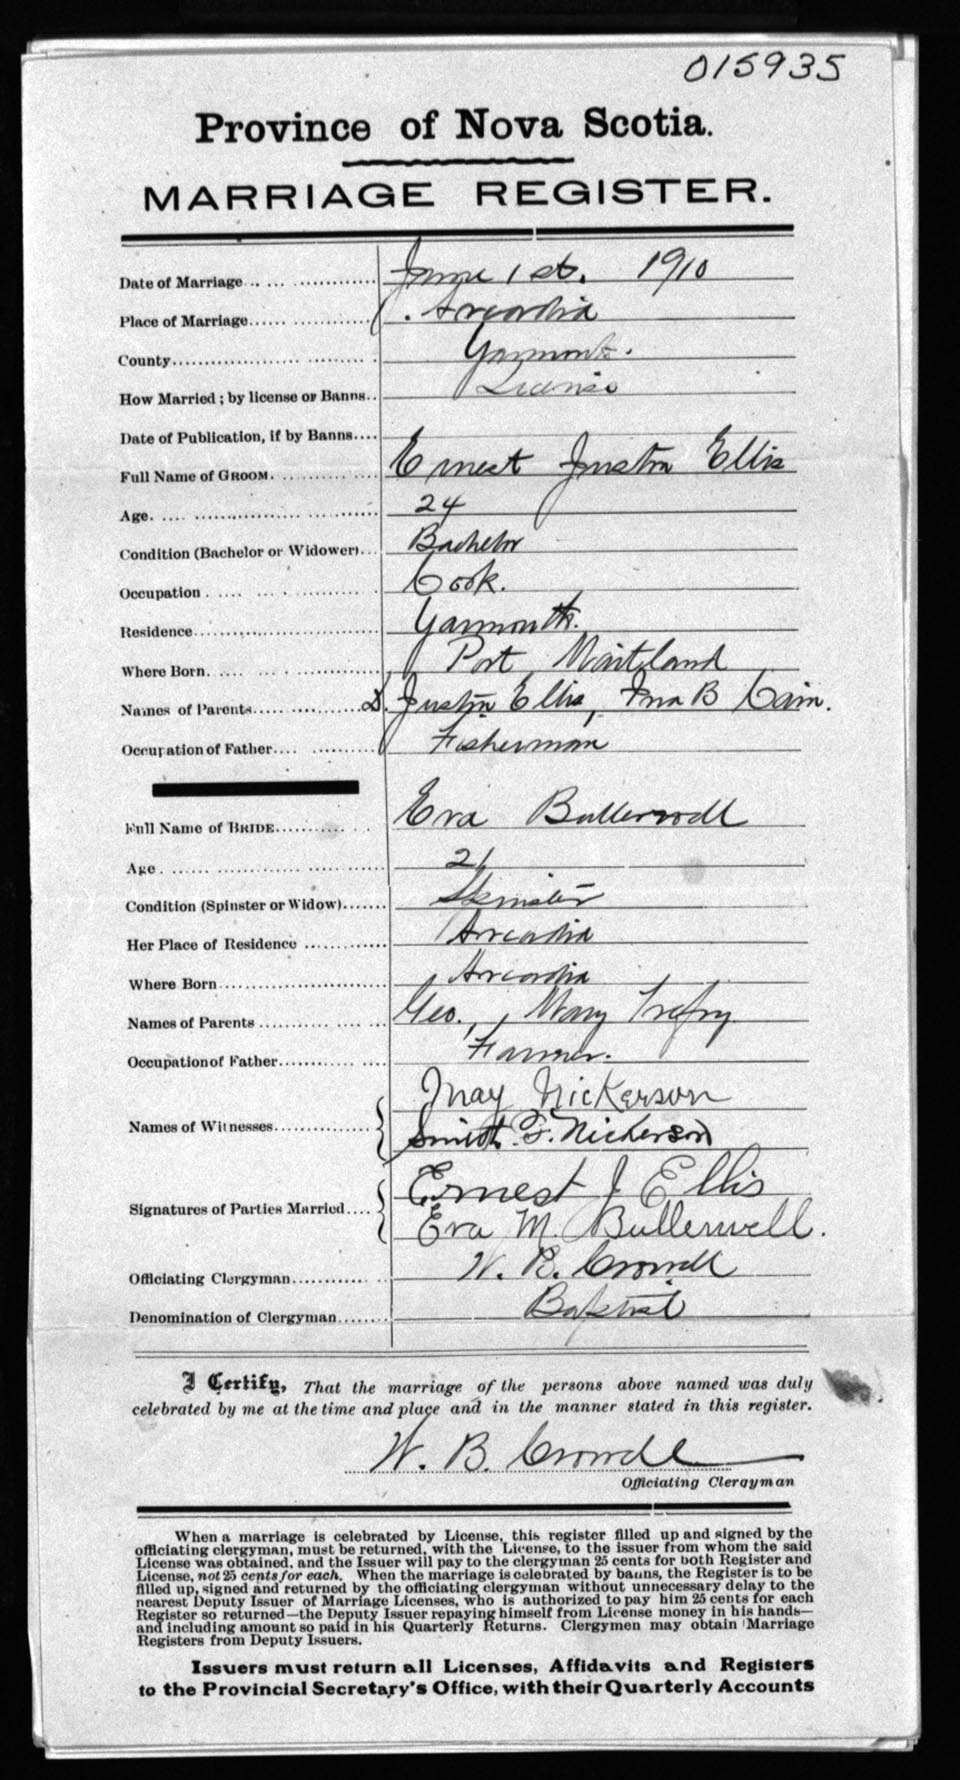 015935
Province of Nova Scotia.
MARRIAGE REGISTER.
Date of Marriage June 1st. 1910
Place of Marriage Arcadia
County Yarmouth.
How Married; by license or Banns License
Date of Publication, if by Banns
Full Name of GROOM Ernest Justin Ellis
Age 24
Condition (Bachelor or Widower) Bachelor
Occupation Cook.
Residence Yarmouth.
Where Born Port Maitland
Names of Parents D. Justin Ellis, Ina B Cain.
Occupation of Father Fisherman
Full Name of BRIDE Eva Bullerwell
Age 21
Condition (Spinster or Widow) Spinster
Her Place of Residence Arcadia
Where Born Arcadia
Names of Parents Geo., Mary Trefry
Occupation of Father Farmer.
Names of Witnesses May Nickerson
Smith F. Nickerson
Signatures of Parties Married Ernest J Ellis
Eva M. Bullerwell.
Officiating Clergyman W. B. Crowell
Denomination of Clergyman Baptist
I Certify, That the marriage of the persons above named was duly
celebrated by me at the time and place and in the manner stated in this register.
W. B. Crowell
Officiating Clergyman
When a marriage is celebrated by License, this register filled up and signed by the
officiating clergyman, must be returned, with the License, to the issuer from whom the said
License was obtained, and the Issuer will pay to the clergyman 25 cents for both Register and
License, not 25 cents for each. When the marriage is celebrated by banns, the Register is to be
filled up, signed and returned by the officiating clergyman without unnecessary delay to the
nearest Deputy Issuer of Marriage Licenses, who is authorized to pay him 25 cents for each
Register so returned—the Deputy Issuer repaying himself from License money in his hands—
and including amount so paid in his Quarterly Returns. Clergymen may obtain Marriage
Registers from Deputy Issuers.
Issuers must return all Licenses, Affidavits and Registers
to the Provincial Secretary's Office, with their Quarterly Accounts